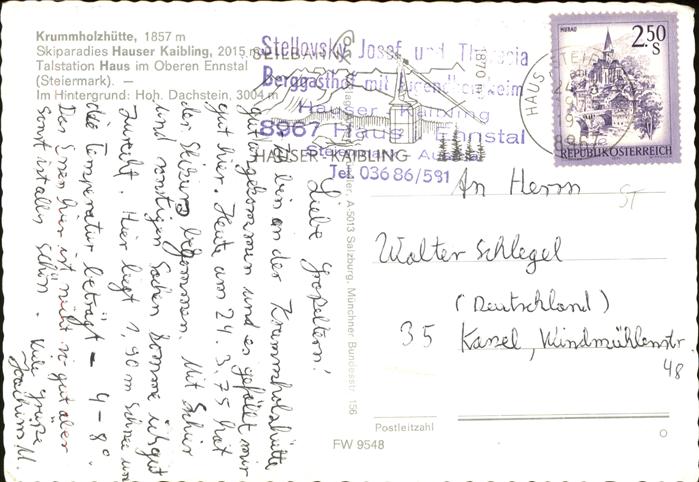 Krummholzhütte, 1857 m
Skiparadies Hauser Kaibling, 2015 m
Talstation Haus im Oberen Ennstal
(Steiermark). —
Im Hintergrund: Hoh. Dachstein, 3004 m
Stellovsky Josef und Theresia
Berggasthof mit Jugendheim
Hauser Kaibling
8967 Haus Ennstal
Steiermark Austria
Tel. 036 86/591
SEILBAHN
1870 m
HAUSER-KAIBLING
HAUS
8967
MURAU
2.50
S
REPUBLIK ÖSTERREICH
Liebe Großeltern!
bin an der Krummholzhütte
gut angekommen und es gefällt mir
gut hier. Heute am 24.3.75 hat
der Skikurs begonnen. Mit Skier
und sonstigen Sachen komme ich gut
zurecht. Hier liegt 1,90 m Schnee und
die Temperatur beträgt - 4 - 8°.
Das Essen hier ist nicht so gut aber
sonst ist alles schön. Viele Grüße
Joachim M.
A-5013 Salzburg, Münchner Bundesstr. 156
An Herrn
ST
Walter Schlegel
(Deutschland)
35 Kassel, Windmühlenstr
48
Postleitzahl
FW 9548